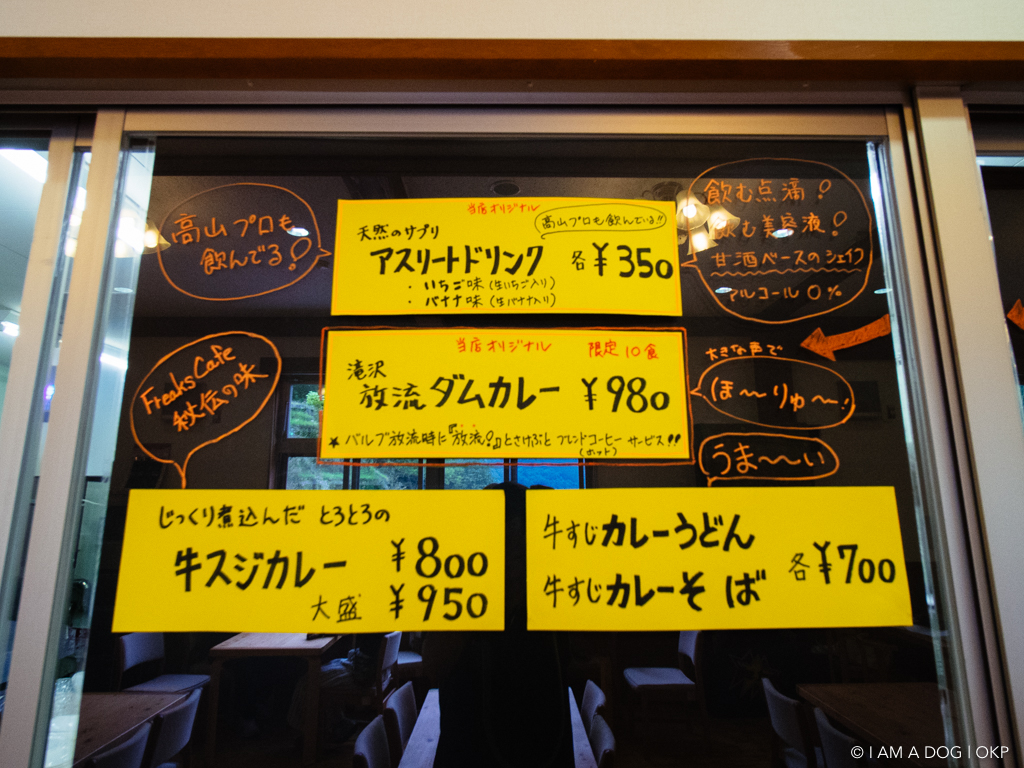 高山プロも
飲んでる!
当店オリジナル
天然のサプリ
高山プロも飲んでいる!!
アスリートドリンク 各¥350
・いちご味(生いちご入り)
・バナナ味(生バナナ入り)
飲む点滴!
飲む美容液!
甘酒ベースのシェイク
アルコール0%
Freaks Cafe
秘伝の味
当店オリジナル 限定10食
滝沢
放流ダムカレー ¥980
★バルブ放流時に『放流!』とさけぶとブレンドコーヒーサービス!!
(ホット)
大きな声で
ほ〜りゅ〜!
うま〜〜い
じっくり煮込んだ とろとろの
牛スジカレー ¥800
大盛 ¥950
牛すじカレーうどん
牛すじカレーそば
各¥700
© I AM A DOG | OKP